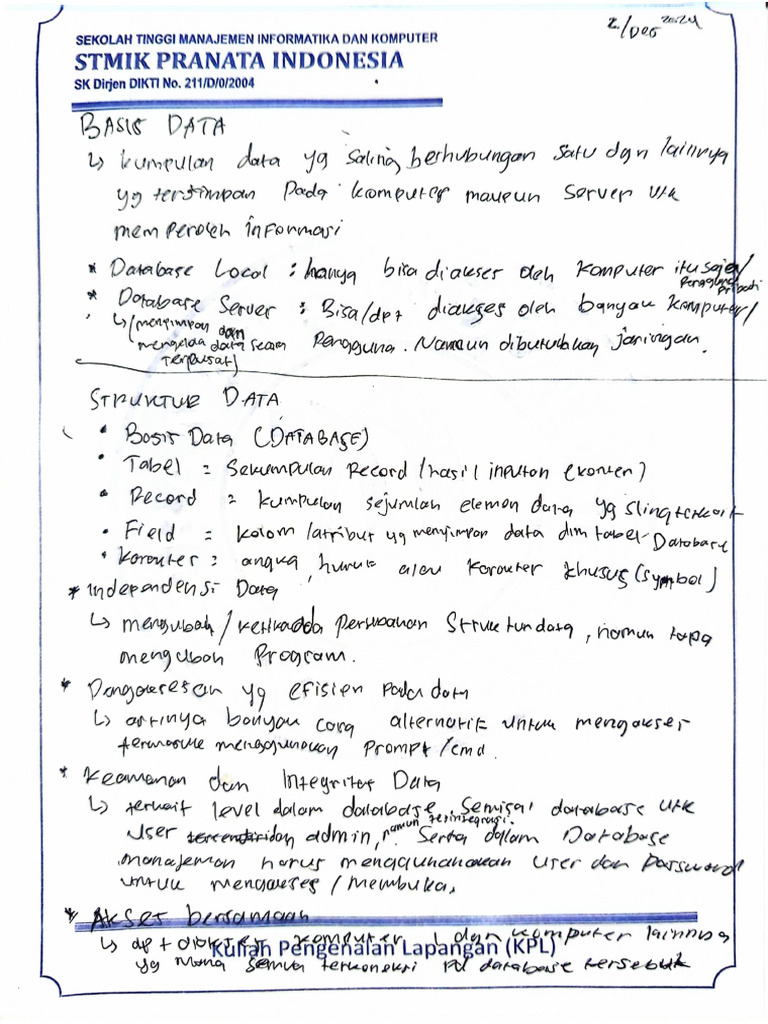 2/Des 2024
SEKOLAH TINGGI MANAJEMEN INFORMATIKA DAN KOMPUTER
STMIK PRANATA INDONESIA
SK Dirjen DIKTI No. 211/D/0/2004
BASIS DATA
↳ kumpulan data yg saling berhubungan satu dgn lainnya
yg tersimpan pada komputer maupun server utk
memperoleh informasi
* Database Local : hanya bisa diakses oleh komputer itu saja/
pengguna pribadi
* Database Server : Bisa/dpt diakses oleh banyak komputer/
↳ (menyimpan dan
mengelola data secara
terpusat)
Pengguna. Namun dibutuhkan jaringan.
STRUKTUR DATA
• Basis Data (DATABASE)
• Tabel = Sekumpulan Record (hasil inputan (konten)
• Record = kumpulan sejumlah elemen data yg slingterkait
• Field = kolom/atribut yg menyimpan data dlm tabel Database
• Karakter = angka, huruf atau karakter khusus (symbol)
* Independensi Data
↳ mengubah/ketika ada perubahan Struktur data, namun tapa
mengubah Program.
* Pengaksesan yg efisien pada data
↳ artinya banyak cara alternatif untuk mengakses
termasuk menggunakan Prompt/cmd.
* Keamanan dan Integritas Data
↳ terkait level dalam database. Semisal database utk
User dan admin, namun terintegrasi. Serta dalam Database
manajemen harus menggunakan user dan password
untuk mengakses / membuka.
* Akses bersamaan
↳ dpt diakses komputer 1 dgn komputer lainnya
Kuliah Pengenalan Lapangan (KPL)
yg mana semua terkoneksi pd database tersebut